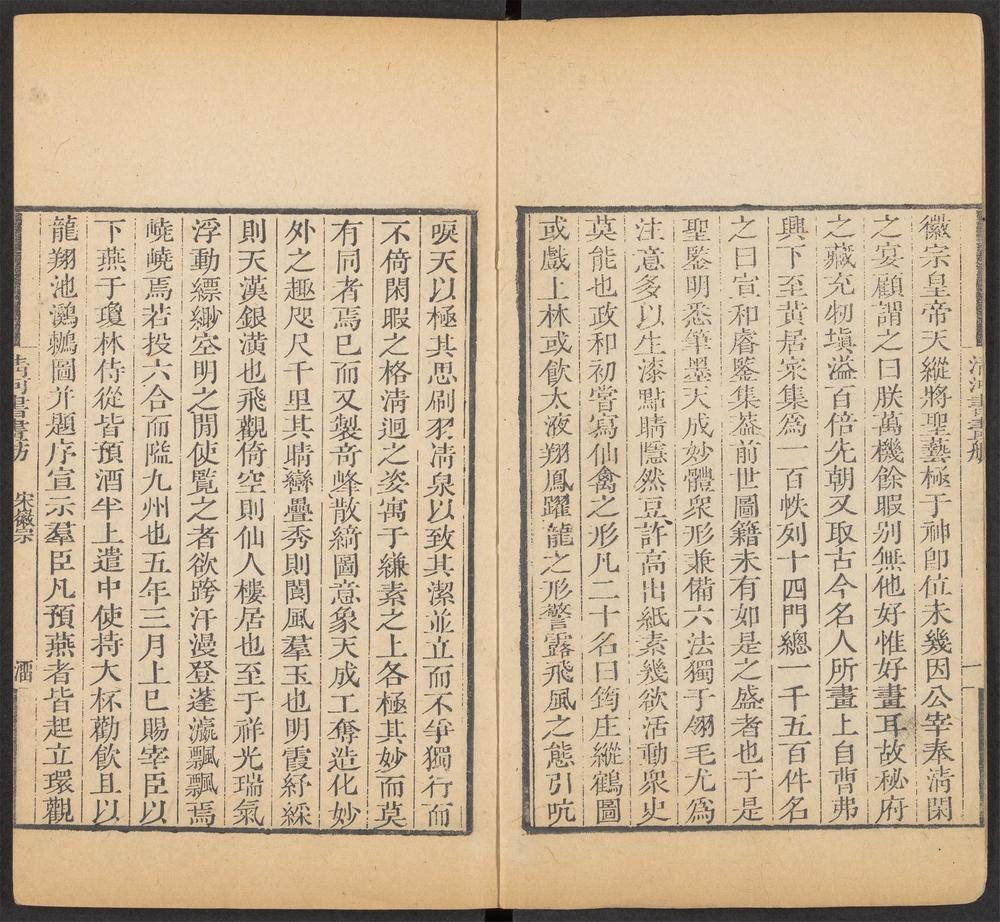 清河書畫舫
一
徽宗皇帝天縱將聖藝極于神卽位未幾因公宰奉清閑
之宴顧謂之曰朕萬機餘暇别無他好惟好畫耳故秘府
之藏充牣塡溢百倍先朝又取古今名人所畫上自曹弗
興下至黃居寀集爲一百帙列十四門總一千五百件名
之曰宣和睿鑒集葢前世圖籍未有如是之盛者也于是
聖鑒明悉筆墨天成妙體衆形兼備六法獨于翎毛尤爲
注意多以生漆點睛隱然豆許高出紙素幾欲活動衆史
莫能也政和初嘗寫仙禽之形凡二十名曰筠庄縱鶴圖
或戲上林或飮太液翔鳳躍龍之形警露飛風之態引吭
唳天以極其思刷羽淸泉以致其潔並立而不爭獨行而
不倚閑暇之格淸迥之姿寓于縑素之上各極其妙而莫
有同者焉已而又製奇峰散綺圖意象天成工奪造化妙
外之趣咫尺千里其晴巒疊秀則閬風羣玉也明霞紓綵
則天漢銀潢也飛觀倚空則仙人樓居也至于祥光瑞氣
浮動縹緲空明之閒使覽之者欲跨汗漫登蓬瀛飄飄焉
嶢嶢焉若投六合而隘九州也五年三月上巳賜宰臣以
下燕于瓊林侍從皆預酒半上遣中使持大杯勸飮且以
龍翔池鸂鶒圖并題序宣示羣臣凡預燕者皆起立環觀
清河書畫舫
宋徽宗